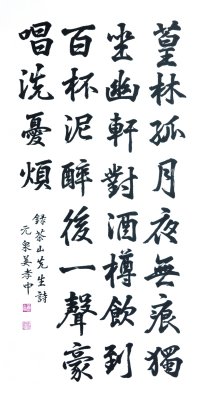 篁林孤月夜無痕獨
坐幽軒對酒樽飲到
百杯泥醉後一聲豪
唱洗憂煩
錄茶山先生詩
元泉姜孝中